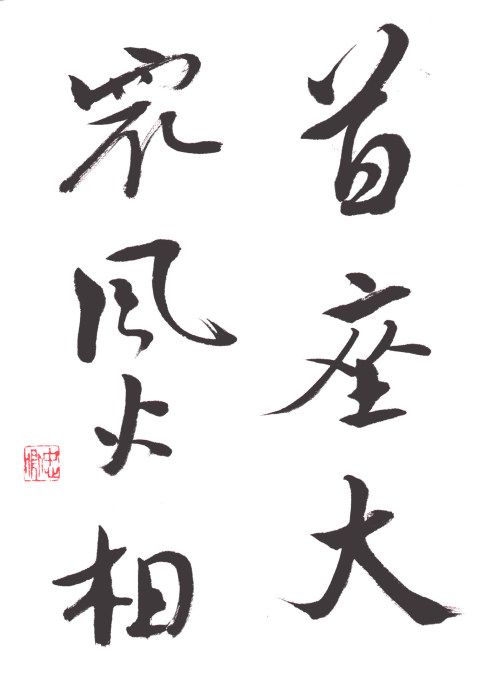 首座大
衆風火相